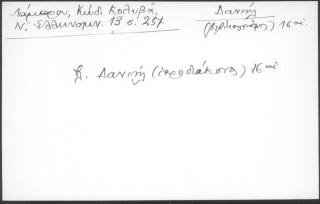 Λάμπρου, Κώδ. Κολυβᾶ,
Ν. Ἑλληνομν. 13 σ. 257
Δανιὴλ
(βιβλιογράφος) 16 αἰ.
β. Δανιὴλ (ἱεροδιάκονος) 16 αἰ.